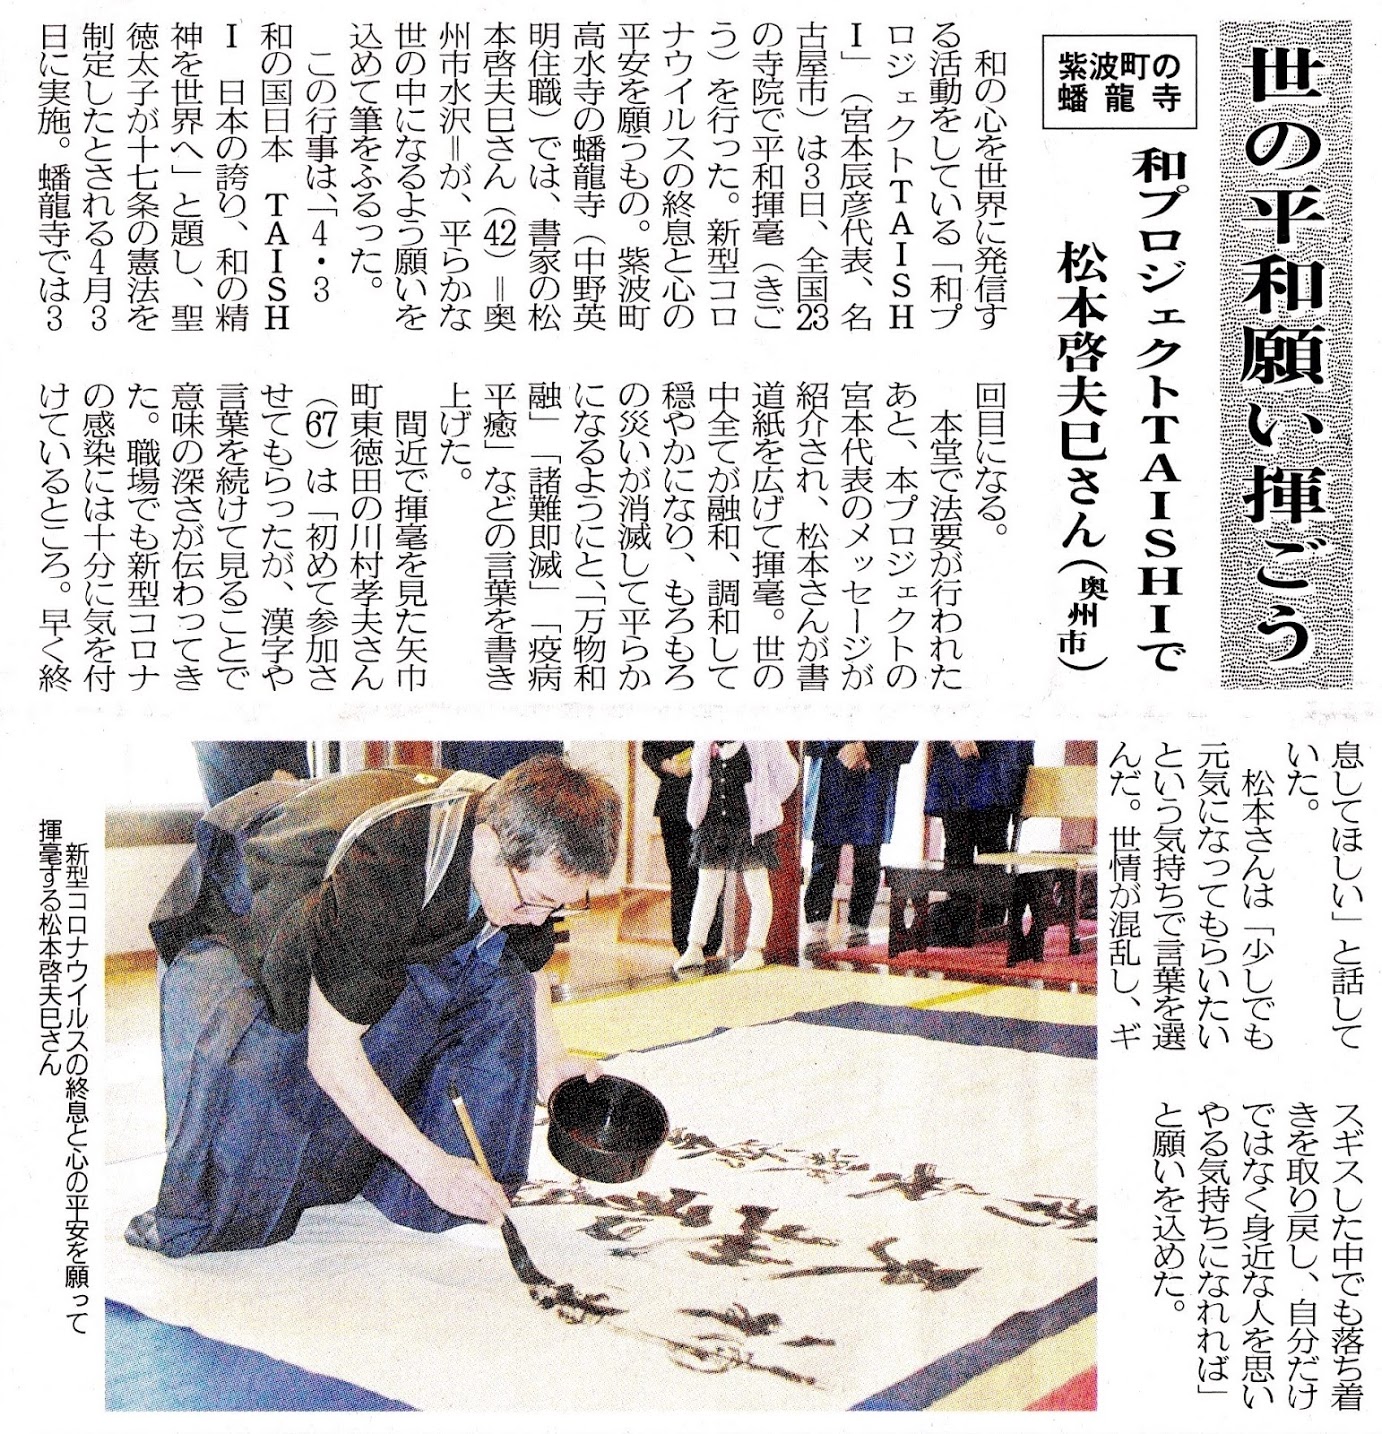 世の平和願い揮ごう
紫波町の
蟠龍寺
和プロジェクトTAISHIで
松本啓夫巳さん（奥州市）
和の心を世界に発信す
る活動をしている「和プ
ロジェクトTAISH
I」（宮本辰彦代表、名
古屋市）は3日、全国23
の寺院で平和揮毫（きご
う）を行った。新型コロ
ナウイルスの終息と心の
平安を願うもの。紫波町
高水寺の蟠龍寺（中野英
明住職）では、書家の松
本啓夫巳さん（42）＝奥
州市水沢＝が、平らかな
世の中になるよう願いを
込めて筆をふるった。
この行事は、「4・3
和の国日本　TAISH
I　日本の誇り、和の精
神を世界へ」と題し、聖
徳太子が十七条の憲法を
制定したとされる4月3
日に実施。蟠龍寺では3
回目になる。
本堂で法要が行われた
あと、本プロジェクトの
宮本代表のメッセージが
紹介され、松本さんが書
道紙を広げて揮毫。世の
中全てが融和、調和して
穏やかになり、もろもろ
の災いが消滅して平らか
になるようにと、「万物和
融」「諸難即滅」「疫病
平癒」などの言葉を書き
上げた。
間近で揮毫を見た矢巾
町東徳田の川村孝夫さん
（67）は「初めて参加さ
せてもらったが、漢字や
言葉を続けて見ることで
意味の深さが伝わってき
た。職場でも新型コロナ
の感染には十分に気を付
けているところ。早く終
息してほしい」と話して
いた。
松本さんは「少しでも
元気になってもらいたい
という気持ちで言葉を選
んだ。世情が混乱し、ギ
スギスした中でも落ち着
きを取り戻し、自分だけ
ではなく身近な人を思い
やる気持ちになれれば」
と願いを込めた。
新型コロナウイルスの終息と心の平安を願って
揮毫する松本啓夫巳さん